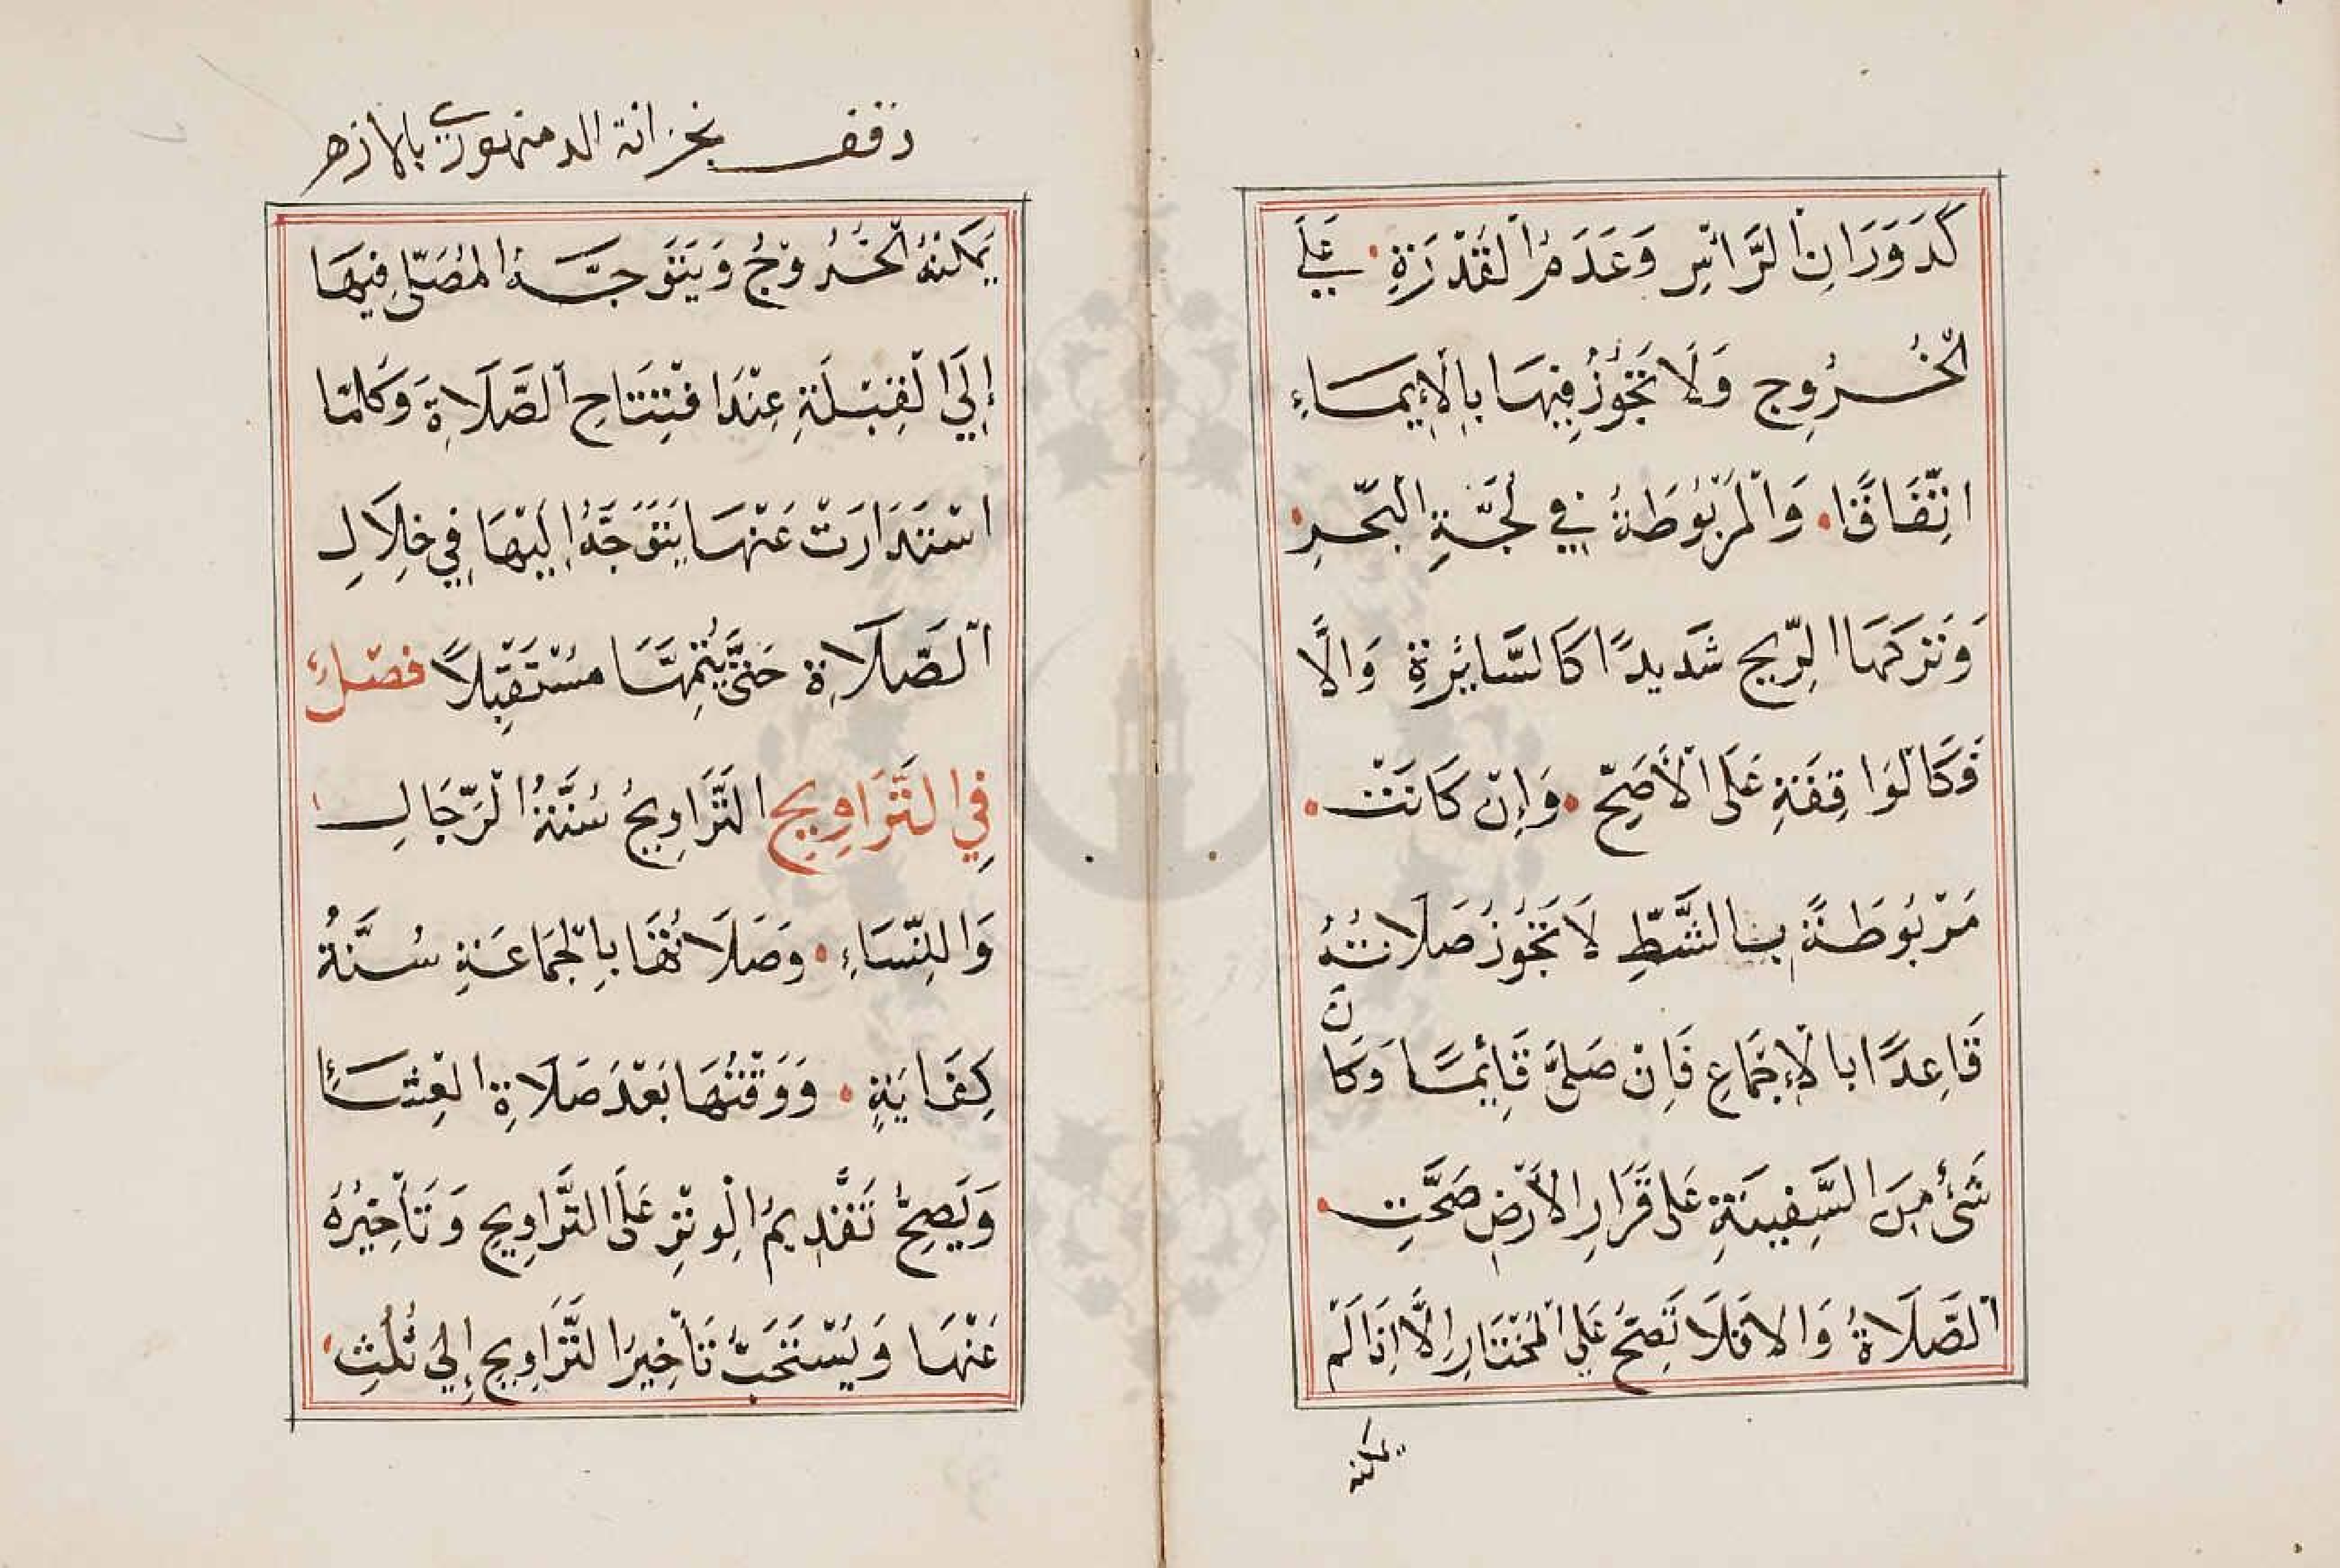 كَدَوَرَانِ الرَّأْسِ وَعَدَمُ الْقُدْرَةِ عَلَى
الْخُرُوجِ وَلَا تَجُوزُ فِيهَا بِالْإِيمَاءِ
اتِّفَاقًا وَالْمَرْبُوطَةُ فِي لُجَّةِ الْبَحْرِ
وَتَرَكَهَا الرِّيحِ شَدِيدًا كَالسَّائِرَةِ وَالَّا
فَكَالْوَاقِفَةِ عَلَى الْأَصَحِّ وَإِنْ كَانَتْ
مَرْبُوطَةً بِالشَّطِّ لَا تَجُوزُ صَلَاتُهُ
قَاعِدًا بِالْإِجْمَاعِ فَاِنْ صَلَّى قَائِمًا وَكَانَ
شَىْءٌ مِنَ السَّفِينَةِ عَلَى قَرَارِ الْأَرْضِ صَحَّتِ
الصَّلَاةُ وَالا فَلَا تَصِحُّ عَلَى الْمُخْتَارِ اِلَّا اِذَا لَمْ
يمكنه
وقف بخزانة الدمنهوري بالازهر
يُمْكِنْهُ الْخُرُوجُ وَيَتَوَجَّهُ الْمُصَلِّي فِيهَا
إِلَى الْقِبْلَةِ عِنْدَ افْتِتَاحِ الصَّلَاةِ وَكُلَّمَا
اسْتَدَارَتْ عَنْهَا يَتَوَجَّهُ إِلَيْهَا فِي خِلَالِ
الصَّلَاةِ حَتَّى يُتِمَّهَا مُسْتَقْبِلًا فَصْلٌ
فِي التَّرَاوِيحِ التَّرَاوِيحُ سُنَّةُ الرِّجَالِ
وَالنِّسَاءِ وَصَلَاتُهَا بِالْجَمَاعَةِ سُنَّةُ
كِفَايَةٍ وَوَقْتُهَا بَعْدَ صَلَاةِ الْعِشَاءِ
وَيَصِحُّ تَقْدِيمُ الْوِتْرِ عَلَى التَّرَاوِيحِ وَتَأْخِيرُهُ
عَنْهَا وَيُسْتَحَبُّ تَأْخِيرُ التَّرَاوِيحِ إِلَى ثُلُثِ